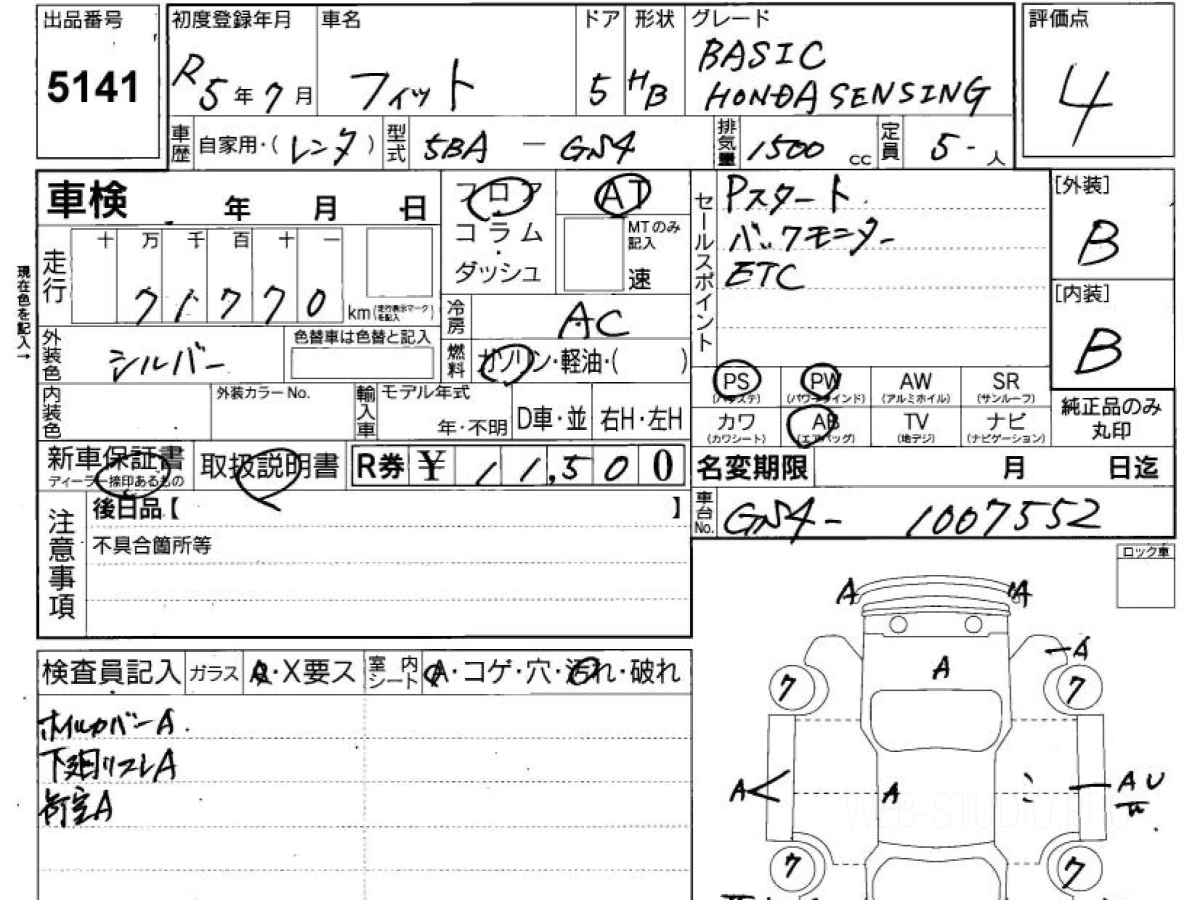 出品番号 初度登録年月 車名 ドア 形状 グレード 評価点
5141 R5年7月 フィット 5 HB BASIC
HONDA SENSING 4
車歴 自家用・(レンタ) 型式 5BA - GN4 排気量 1500 cc 定員 5-人
車検 年 月 日 フロア AT セールスポイント Pスタート [外装]
コラム MTのみ記入 バックモニター B
十 万 千 百 十 一 ダッシュ 速 ETC
走行 71770 km(走行表示マークを記入) [内装]
現在色を記入→ 冷房 AC B
外装色 シルバー 色替車は色替と記入 燃料 ガソリン・軽油・( )
PS (パワステ) PW (パワーウインド) AW (アルミホイル) SR (サンルーフ)
内装色 外装カラーNo. 輸入車 モデル年式 年・不明 D車・並 右H・左H
カワ (カワシート) AB (エアバッグ) TV (地デジ) ナビ (ナビゲーション) 純正品のみ丸印
新車保証書 ディーラー捺印あるもの 取扱説明書 R券 ¥ 11,500 名変期限 月 日迄
後日品【 】 車台No. GN4- 1007552
注意事項 不具合箇所等
ロック車
A A
検査員記入 ガラス A・X要ス 室内シート A・コゲ・穴・汚れ・破れ A A
7 7
ホイルカバーA
下廻リフレA
荷室A
A A A U
WEB-STUDIO.PRO
7 7